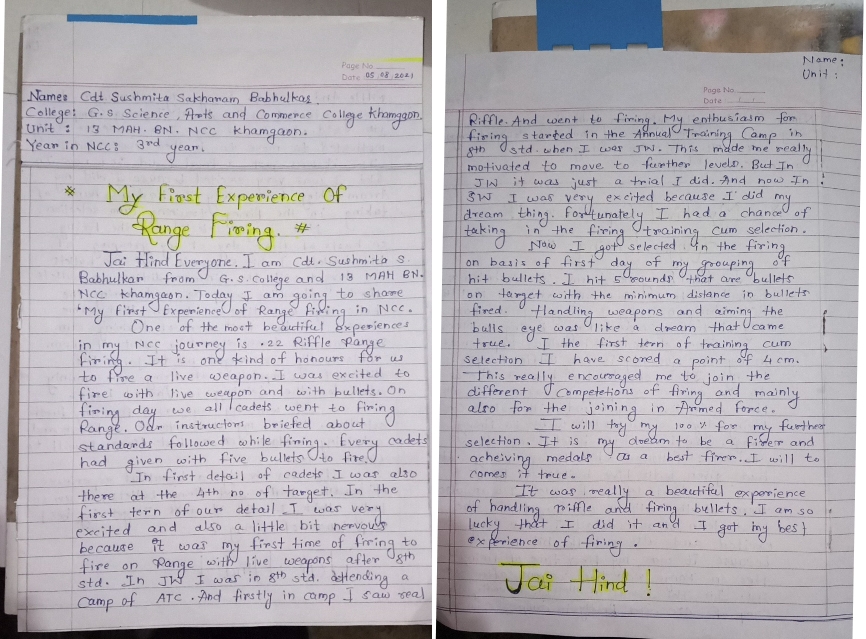 Page No
Date 05 08 2021
Name: Cdt. Sushmita Sakharam Babhulkar.
College: G.S. Science, Arts and Commerce College Khamgaon.
Unit : 13 MAH. BN. NCC Khamgaon.
Year in NCC: 3rd year.
* My First Experience Of
Range Firing. #
Jai Hind Everyone. I am Cdt. Sushmita S.
Babhulkar from G.S. College and 13 MAH BN.
NCC Khamgaon. Today I am going to share
"My First Experience of Range Firing in NCC.
One of the most beautiful experiences
in my NCC journey is .22 Riffle Range
firing. It is one kind of honours for us
to fire a live weapon. I was excited to
fire with live weapon and with bullets. On
firing day we all cadets went to firing
Range. Our instructors briefed about
standards followed while firing. Every cadets
had given with five bullets to fire.
In first detail of cadets I was also
there at the 4th no of target. In the
first tern of our detail I was very
excited and also a little bit nervous
because it was my first time of firing to
fire on Range with live weapons after 8th
std. In JW I was in 8th std. attending a
Camp of ATC. And firstly in camp I saw real
Name:
Unit:
Page No
Date
Riffle. And went to firing. My enthusiasm for
firing started in the Annual Training Camp in
8th std. when I was JW. This made me really
motivated to move to further levels. But In
JW it was just a trial I did. And now In
SW I was very excited because I did my
dream thing. Fortunately I had a chance of
taking in the firing training cum selection.
Now I got selected in the firing
on basis of first day of my grouping of
hit bullets. I hit 5 rounds that are bullets
on target with the minimum distance in bullets
fired. Handling weapons and aiming the
bulls eye was like a dream that came
true. I the first tern of training cum
selection I have scored a point of 4 cm.
This really encouraged me to join the
different Competetions of firing and mainly
also for the joining in Armed force.
I will try my 100% for my further
selection. It is my dream to be a firer and
acheiving medals as a best firer. I will to
comes it true.
It was really a beautiful experience
of handling riffle and firing bullets. I am so
lucky that I did it and I got my best
experience of firing.
Jai Hind !